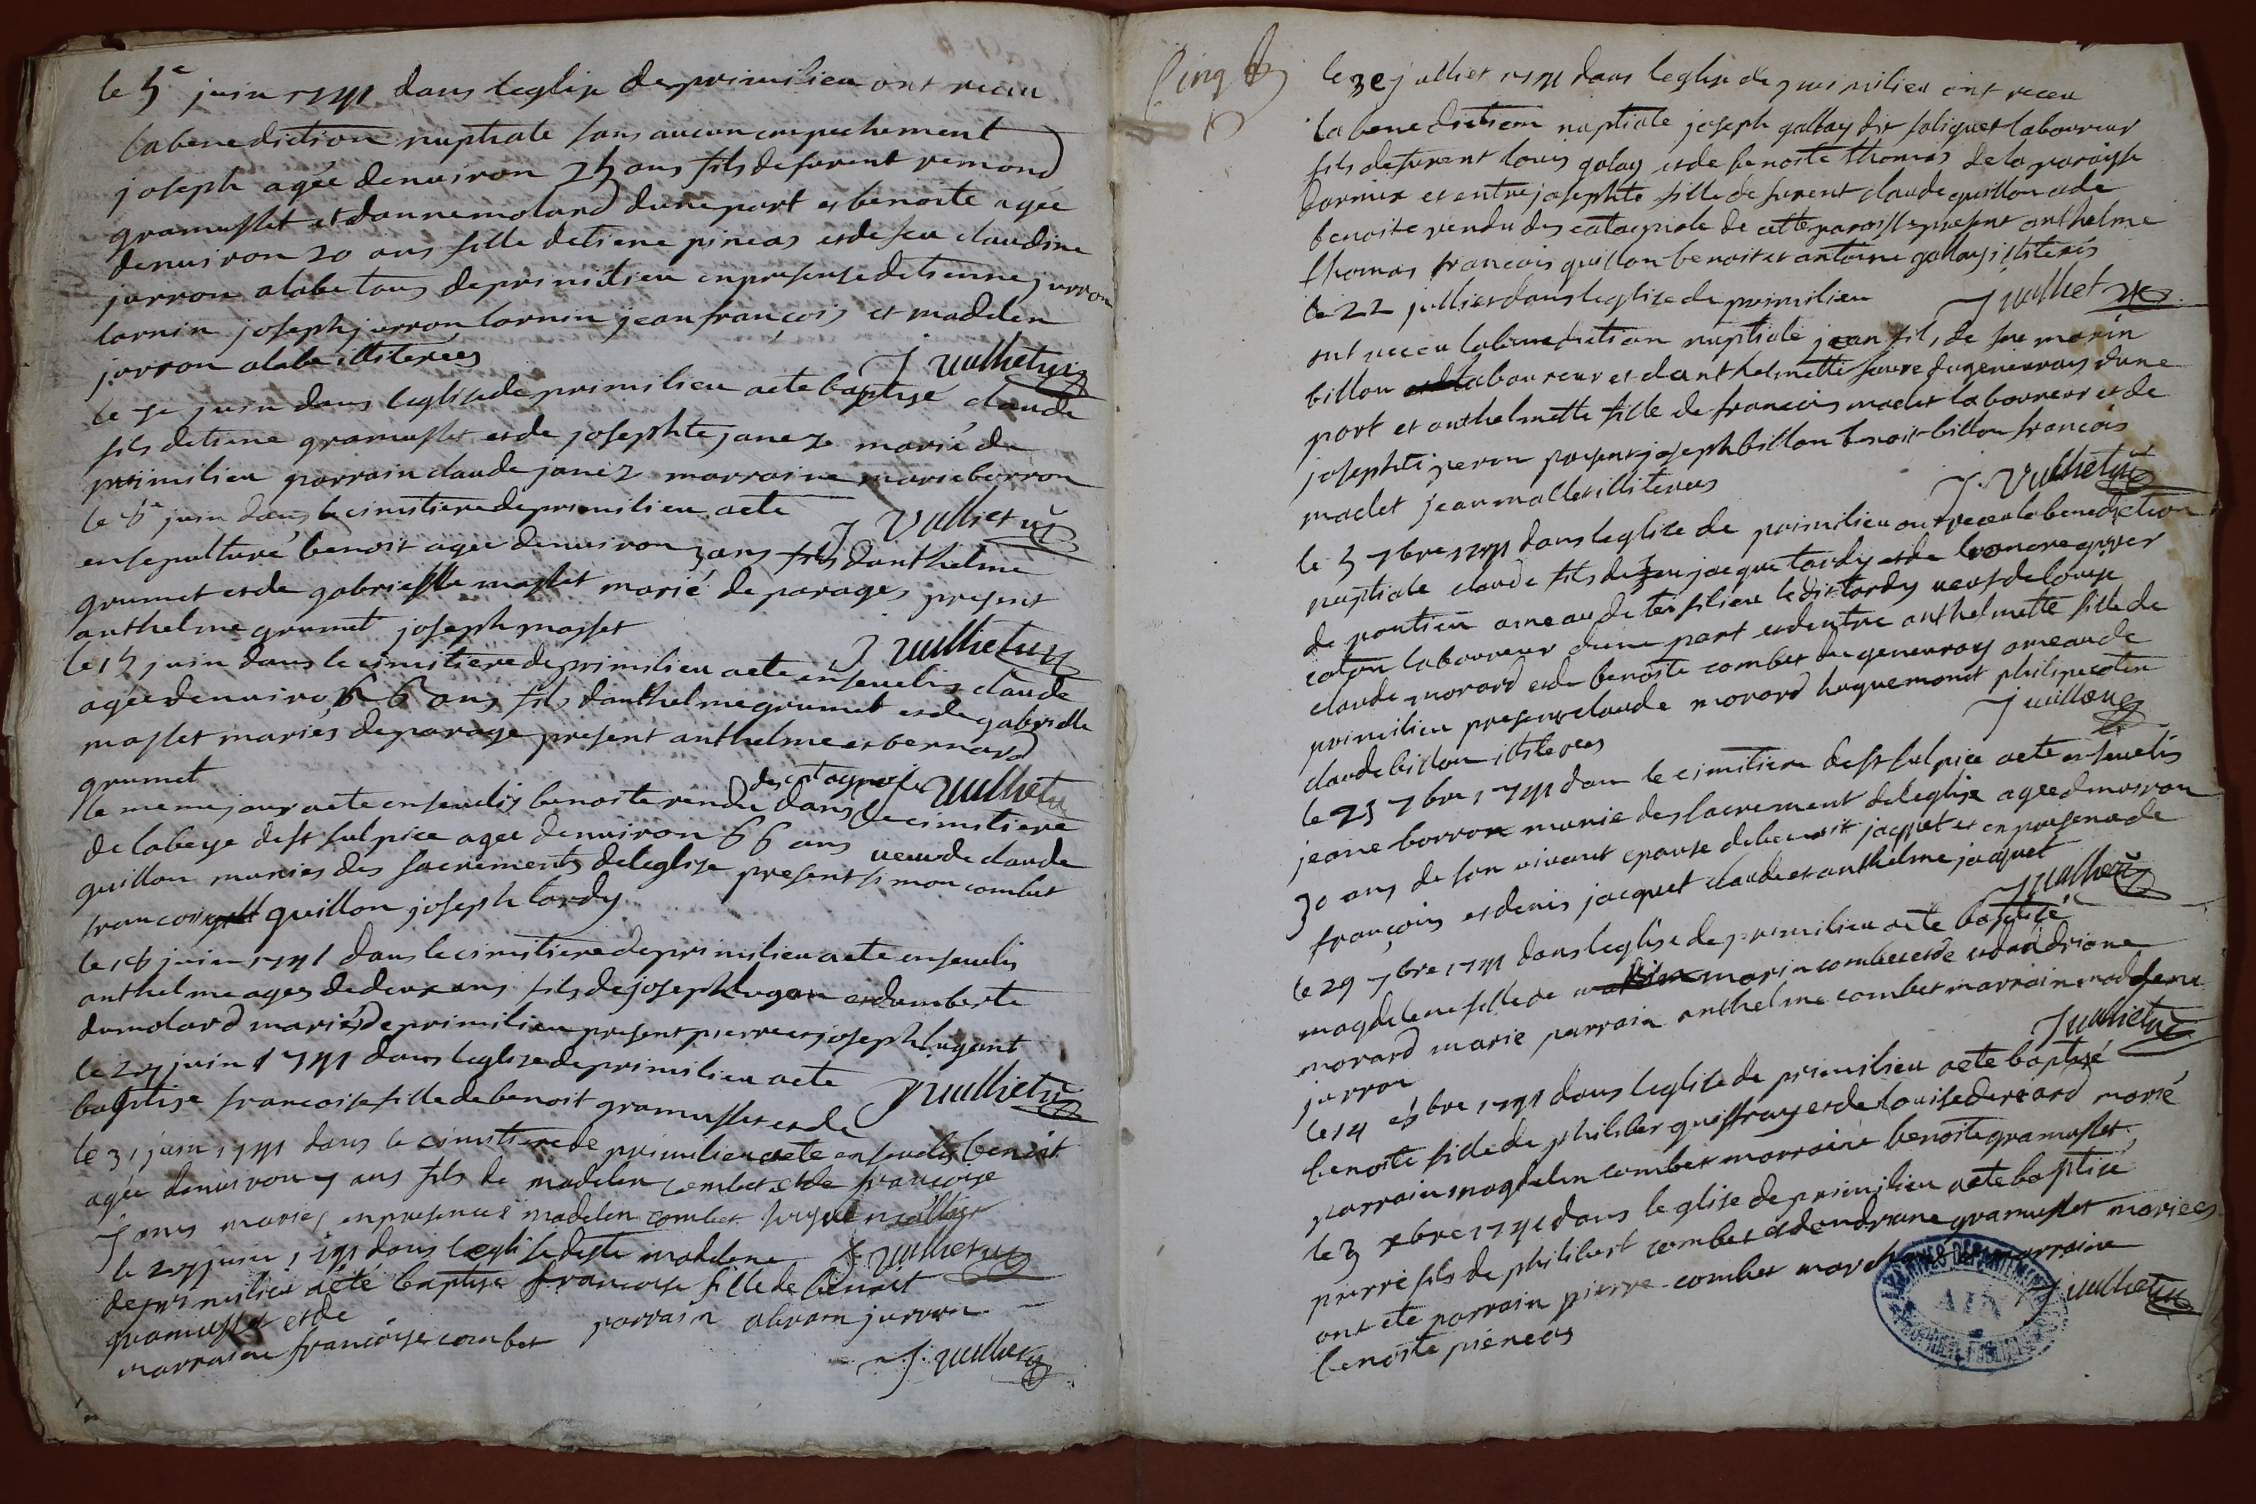 le 5e juin 1791 dans leglise de primilieu ont receu
la benediction nuptiale sans aucun enpechement
joseph agée denuiron 25 ans fils de furent remond
gramusset et danne molard dune part et benoite agée
denuiron 20 ans fille detiene pineas et de feu claudine
jurron alabe tous de primilieu en presense detienne jurron
lornin joseph jurron lornin jean françois et madelen
jurron alabe illiterées
J uulliet
le juin dans leglise de primilieu aete baptisé claude
fils detiene gramusset et de josephte janez marié de
primilieu parrain claude janez marraine marie borron
le 8e juin dans le cimitiere de primilieu aete
J Vulliet
ensepulturé benoit agée denuiron 3 ans fils danthelme
grumet et de gabrielle masset marié de parages present
anthelme grumet joseph masset
J uulliet
le 15 juin dans le cimitiere de primilieu aete enseuelis claude
agée denuiron 6 ans fils danthelme grumet et de gabrielle
masset mariés de parage present anthelme et bernard
grumet
des catagnole
uulliet
le meme jour aete enseuelis benoite rendu dans le cimitiere
de labeye de st sulpice agée denuiron 66 ans ueuue de claude
guillon munies des sacrements de leglise present simon combet
francois guillon joseph tardy
le 16 juin 1791 dans le cimitiere de primilieu aete enseuelis
anthelme ages de deux ans fils de joseph lugan et dumberte
dumolard mariés de primilieu present pierre et joseph lugant
le 27 juin 1791 dans leglise de primilieu aete
J uulliet
baptise francoise fille de benoit gramusset et de
le 31 juin 1791 dans le cimitiere de primilieu aete enseuelis benoit
agée denuiron 7 ans fils de madelen combet et de françoise
mariés en presence madelen combet
le 27 juin 1791 dans leglise de ste madelene
J. uulliet
de primilieu aété baptise francoise fille de benoit
gramusset et de parrain abram jurron
marraine françoise combet
J. uulliet
Cinq
le 3e julliet 1791 dans leglise de primilieu ont receu
la benediction nuptiale joseph gallay dit faliquet laboureur
fils de furent louis galay et de benoite thomas de la paroisse
dormix et entre josephte fille de furent claude guillon et de
benoite rendu des catagniole de cette paroisse present anthelme
thomas francois guillon benoit et antoine gallay illiterés
J uulliet
le 22 julliet dans leglise de primilieu
ont receu la benediction nuptiale jean fils de feu marin
billon laboureur et danthelmette faure du geneurais dune
part et anthelmette fille de francois maclet laboureur et de
josephte peron present joseph billon benoit billon francois
maclet jean maclet illiterees
J. Vulliet
le 3 7bre 1791 dans leglise de primilieu ont receu la benediction
nuptiale claude fils de feu jacque tardy et de
de pontieu ameau de tenfilieu ledit tardy ueuf de louise
laboureur dune part et dentre anthelmette fille de
claude morard et de benoite combet du geneuray ameau de
primilieu present claude morard huguemonet philipe cotin
claude billon illiterees
J uulliet
le 25 7bre 1791 dan le cimitiere de st sulpice aete enseuelis
jeane borron munie des sacrement de leglise agée denuiron
30 ans de son uiuant epouse de benoit jacquet et en presence de
françois et denis jacquet claude et anthelme jacquet
J uulliet
le 29 7bre 1791 dans leglise de primilieu aete baptisé
magdelene fille de marin combet et dandriane
morard marie parrain anthelme combet marraine madlene
jurron
J uulliet
le 14 8bre 1791 dans leglise de primilieu aete baptisé
benoite fille de philiber gueffray et de louise derard marié
parrain magdelen combet marraine benoite gramusset
le 3 xbre 1791 dans leglise de primilieu aete baptisé
pierre fils de philibert combet et dandriane gramusset mariées
ont ete parrain pierre combet marraine
benoite pieneas
J uulliet
ARCHIVES DEPARTEMENTALES
AIN